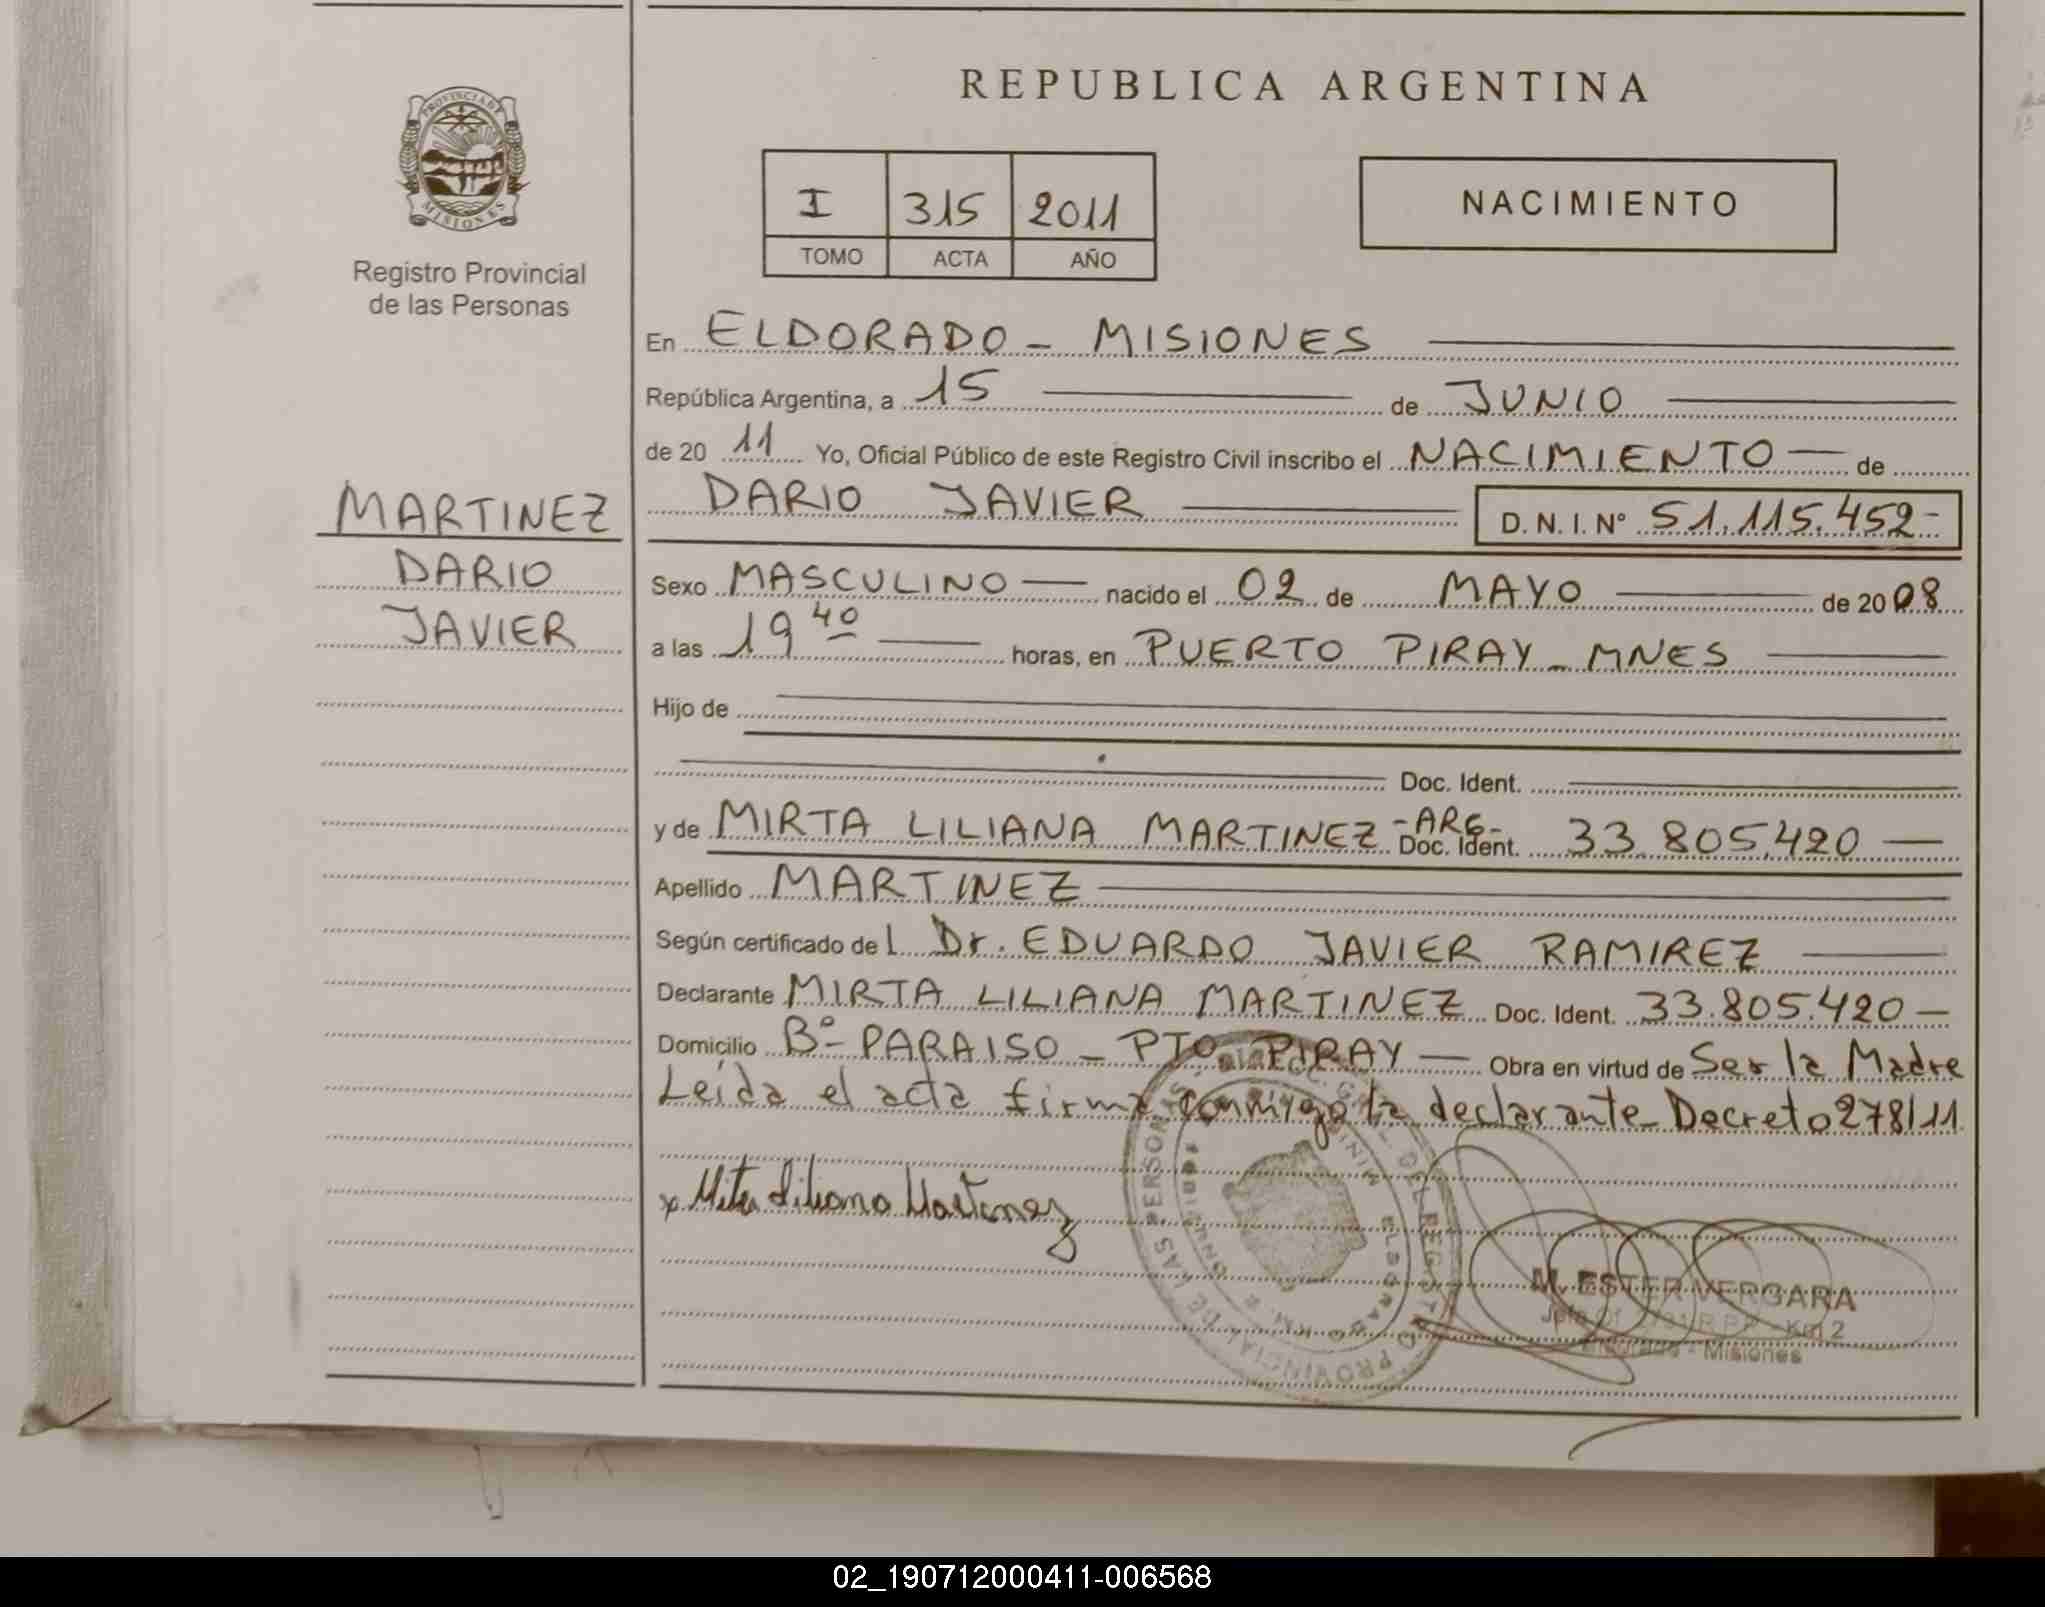 REPUBLICA ARGENTINA
PROVINCIA DE
MISIONES
Registro Provincial
de las Personas
I 315 2011
TOMO ACTA AÑO
NACIMIENTO
En ELDORADO - MISIONES
República Argentina, a 15 de JUNIO
de 20 11 Yo, Oficial Público de este Registro Civil inscribo el NACIMIENTO de
DARIO JAVIER D. N. I. Nº 51.115.452-
MARTINEZ
DARIO
JAVIER
Sexo MASCULINO nacido el 02 de MAYO de 2008
a las 19 40 horas, en PUERTO PIRAY - MNES
Hijo de
Doc. Ident.
y de MIRTA LILIANA MARTINEZ -ARG- Doc. Ident. 33.805.420
Apellido MARTINEZ
Según certificado de l Dr. EDUARDO JAVIER RAMIREZ
Declarante MIRTA LILIANA MARTINEZ Doc. Ident. 33.805.420
Domicilio Bº PARAISO - PTO PIRAY Obra en virtud de Ser la Madre
Leída el acta firma conmigo la declarante - Decreto 278/11
x Mirta Liliana Martinez
M. ESTER VERGARA
Km 2
Misiones
DEL REGISTRO PROVINCIAL DE LAS PERSONAS
ELDORADO
02_190712000411-006568